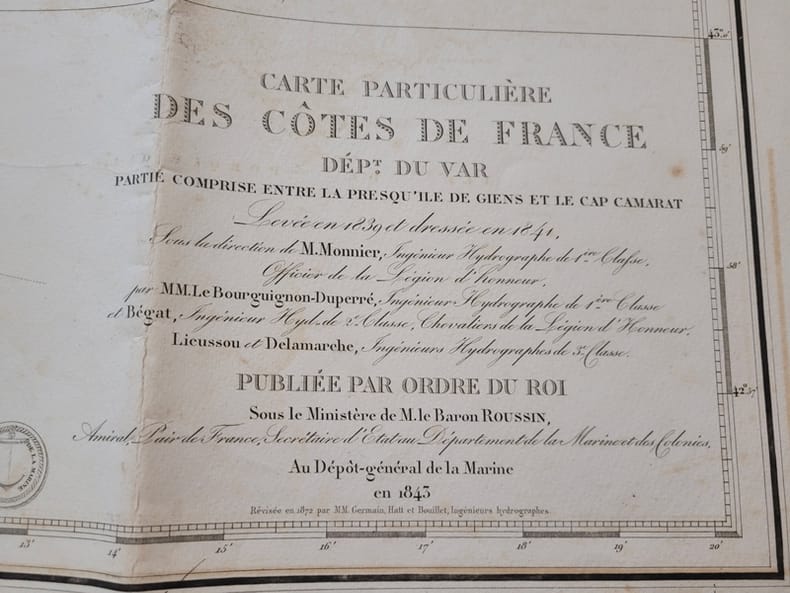 CARTE PARTICULIÈRE
DES CÔTES DE FRANCE
DÉPT. DU VAR
PARTIE COMPRISE ENTRE LA PRESQU'ILE DE GIENS ET LE CAP CAMARAT
Levée en 1839 et dressée en 1841,
Sous la direction de M. Monnier, Ingénieur Hydrographe de 1ère Classe,
Officier de la Légion d'honneur,
par MM. Le Bourguignon-Duperré, Ingénieur Hydrographe de 1ère Classe
et Bégat, Ingénieur Hyd. de 2e Classe, Chevaliers de la Légion d'Honneur,
Licussou et Delamarche, Ingénieurs Hydrographes de 3e Classe.
PUBLIÉE PAR ORDRE DU ROI
Sous le Ministère de M. le Baron ROUSSIN,
Amiral, Pair de France, Secrétaire d'Etat au Département de la Marine et des Colonies,
Au Dépôt-général de la Marine
en 1843
Révisée en 1872 par MM. Germain, Hatt et Bouillet, Ingénieurs hydrographes.
DE LA MARINE
43° 0'
59'
58'
42° 57'
13'
14'
15'
16'
17'
18'
19'
20'